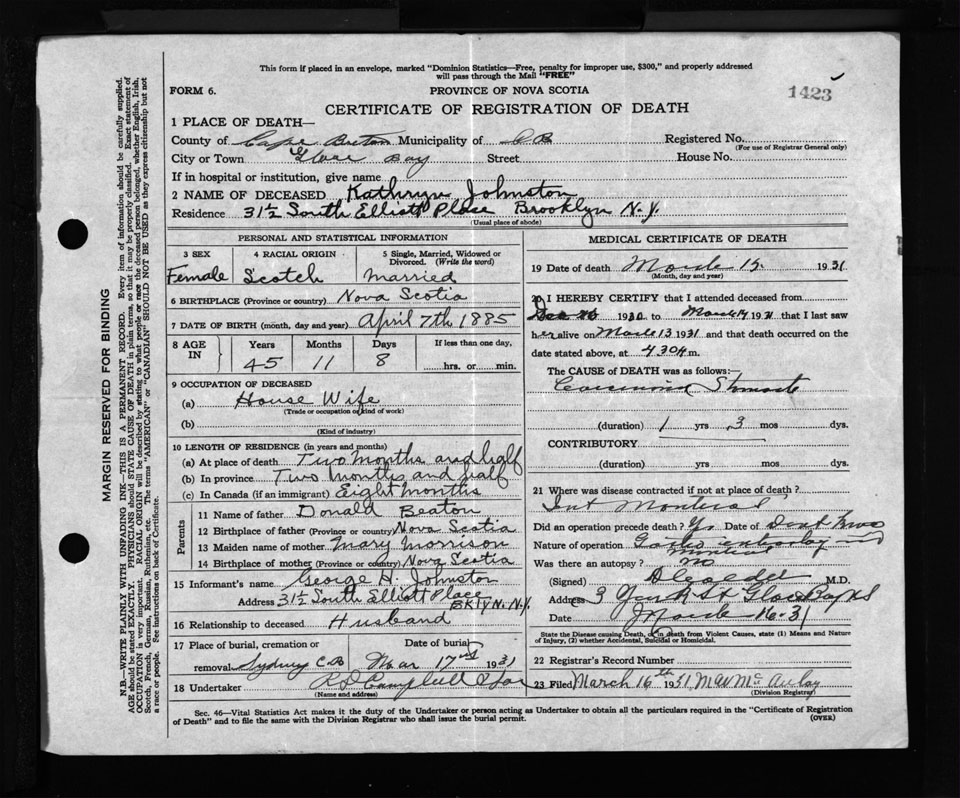 This form if placed in an envelope, marked "Dominion Statistics—Free, penalty for improper use, $300," and properly addressed
will pass through the Mail "FREE"
FORM 6.
PROVINCE OF NOVA SCOTIA
1423
CERTIFICATE OF REGISTRATION OF DEATH
1 PLACE OF DEATH—
County of Cape Breton Municipality of C B Registered No.
(For use of Registrar General only)
City or Town Glace Bay Street House No.
If in hospital or institution, give name
2 NAME OF DECEASED Kathryn Johnston
Residence 31½ South Elliott Place Brooklyn N.Y.
(Usual place of abode)
PERSONAL AND STATISTICAL INFORMATION
3 SEX 4 RACIAL ORIGIN 5 Single, Married, Widowed or
Divorced. (Write the word)
Female Scotch Married
6 BIRTHPLACE (Province or country) Nova Scotia
7 DATE OF BIRTH (month, day and year) April 7th 1885
8 AGE IN Years Months Days If less than one day,
45 11 8 hrs. or min.
9 OCCUPATION OF DECEASED
(a) House Wife
(Trade or occupation or kind of work)
(b)
(Kind of industry)
10 LENGTH OF RESIDENCE (in years and months)
(a) At place of death Two months and half
(b) In province Two months and half
(c) In Canada (if an immigrant) Eight months
Parents
11 Name of father Donald Beaton
12 Birthplace of father (Province or country) Nova Scotia
13 Maiden name of mother Mary Morrison
14 Birthplace of mother (Province or country) Nova Scotia
15 Informant's name George H. Johnston
Address 31½ South Elliott Place
BKlyn. N.Y.
16 Relationship to deceased Husband
17 Place of burial, cremation or Date of burial
removal Sydney C.B Mar 17 1931
18 Undertaker Campbell
(Name and address)
MEDICAL CERTIFICATE OF DEATH
19 Date of death March 15 1931
(Month, day and year)
20 I HEREBY CERTIFY that I attended deceased from
Dec 1930 to March 14 1931 that I last saw
her alive on March 13 1931 and that death occurred on the
date stated above, at 4 30 m.
The CAUSE of DEATH was as follows:—
Carcinoma Stomach
(duration) 1 yrs 3 mos dys.
CONTRIBUTORY
(duration) yrs. mos. dys.
21 Where was disease contracted if not at place of death?
Montreal
Did an operation precede death? Y. Date of Dont Know
Nature of operation
Was there an autopsy? no
(Signed) M.D.
Address York St Glace Bay NS
Date March 16-31
State the Disease causing Death, or in death from Violent Causes, state (1) Means and Nature
of Injury, (2) whether Accidental, Suicidal or Homicidal.
22 Registrar's Record Number
23 Filed March 16th 1931 McAulay
(Division Registrar)
Sec. 46—Vital Statistics Act makes it the duty of the Undertaker or person acting as Undertaker to obtain all the particulars required in the "Certificate of Registration
of Death" and to file the same with the Division Registrar who shall issue the burial permit.
(OVER)
MARGIN RESERVED FOR BINDING
N.B.—WRITE PLAINLY WITH UNFADING INK—THIS IS A PERMANENT RECORD. Every item of information should be carefully supplied.
AGE should be stated EXACTLY. PHYSICIANS should STATE CAUSE OF DEATH in plain terms, so that it may be properly classified. Exact statement of
OCCUPATION is very important. RACIAL ORIGIN will be described by stating to what people or race the deceased person belonged, whether English, Irish,
Scotch, French, German, Russian, Ruthenian, etc. The terms "AMERICAN" or "CANADIAN" SHOULD NOT BE USED as they express citizenship but not
a race or people. See instructions on back of Certificate.